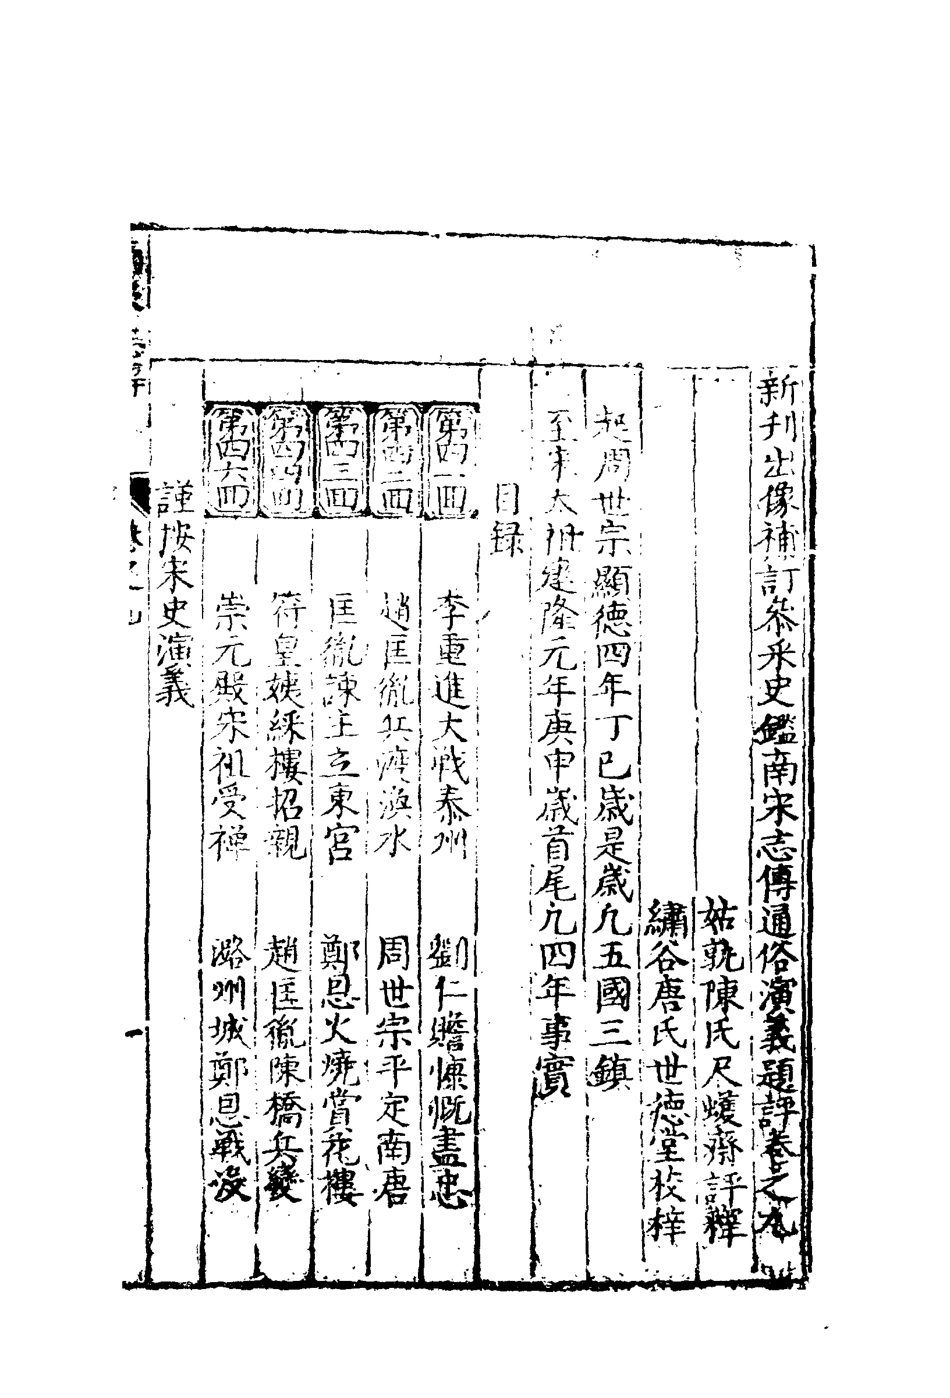 新刊出像補訂叅采史鑑南宋志傳通俗演義題評卷之九
姑孰陳氏尺蠖齋評釋
繡谷唐氏世德堂校梓
起周世宗顯德四年丁巳歲是歲凢五國三鎮
至宋太祖建隆元年庚申歲首尾凢四年事實
目録
第四一回 李重進大戰泰州 劉仁贍慷慨盡忠
第四二回 趙匡胤兵渡渙水 周世宗平定南唐
第四三回 匡胤諫主立東宮 鄭恩火燒賞花樓
第四四回 符皇姨綵樓招親 趙匡胤陳橋兵變
第四六回 崇元殿宋祖受禅 潞州城鄭恩戰没
謹按宋史演義
卷之九